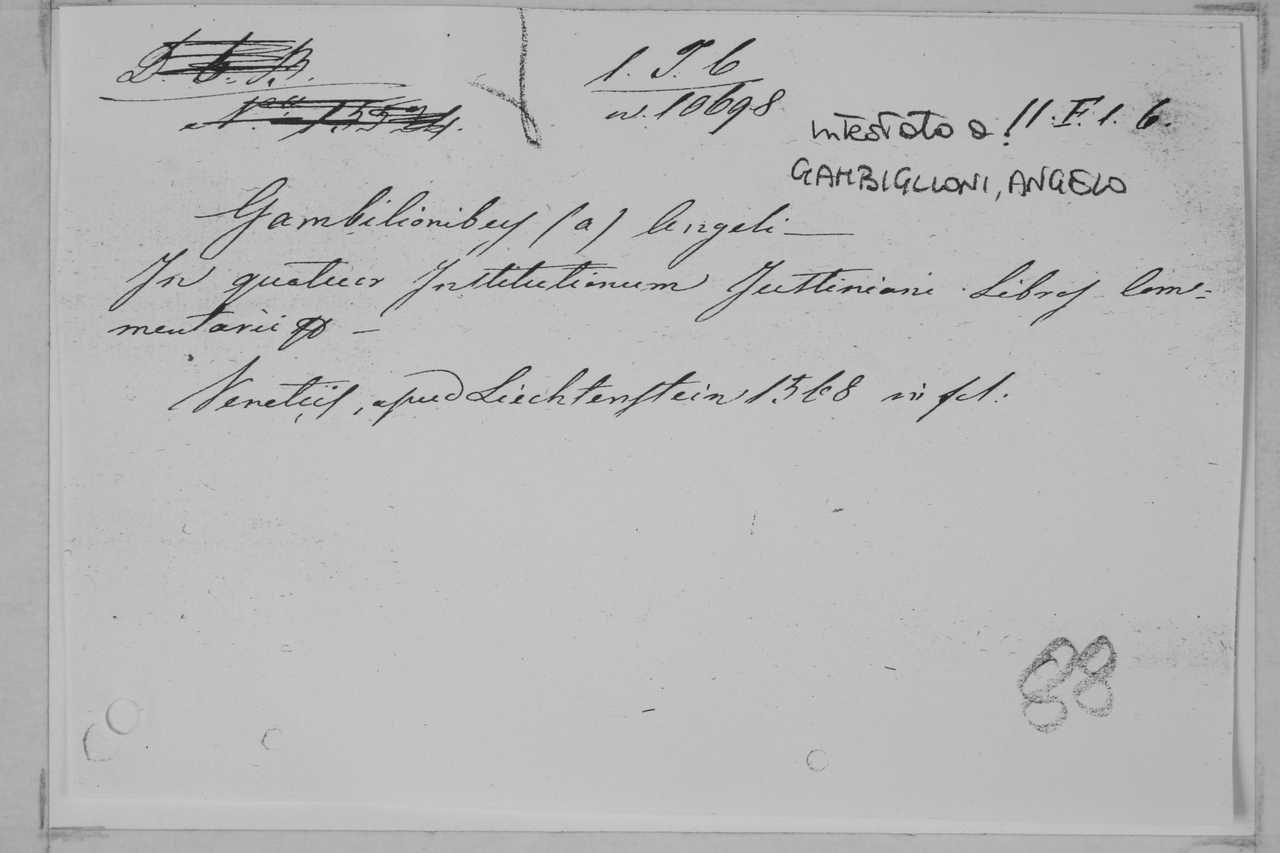 1. T. 6
n. 10698
intestato a !! F. 1. 6.
GAMBIGLIONI, ANGELO
Gambilionibus (a) Angeli —
In quatuor Institutionum Justiniani Libros Com-
mentarii —
Venetiis, apud Liechtenstein 1568 in fol.
88